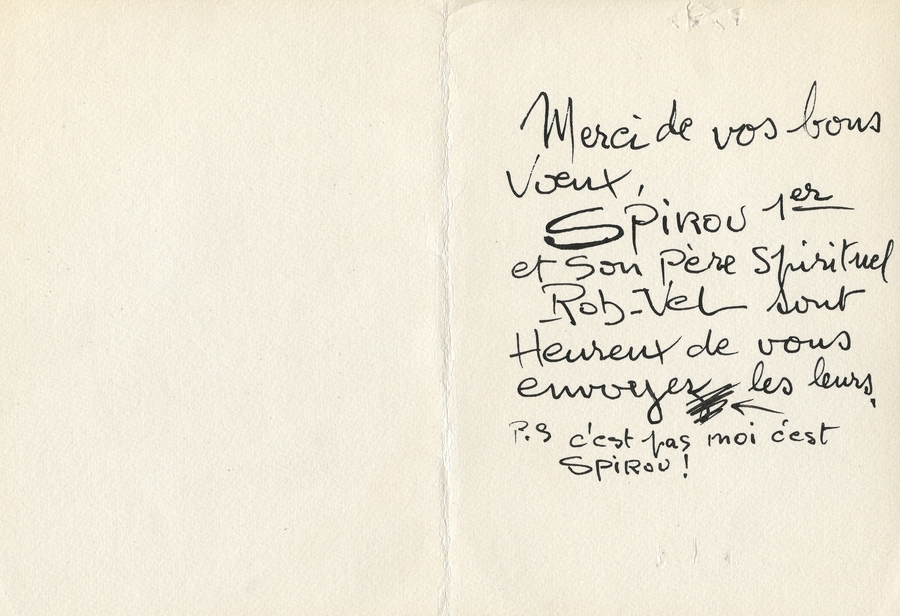 Merci de vos bons
Vœux,
SPIROU 1er
et Son Père Spirituel
Rob-Vel sont
Heureux de vous
envoyer les leurs,
P.S c'est pas moi c'est
SPIROU !